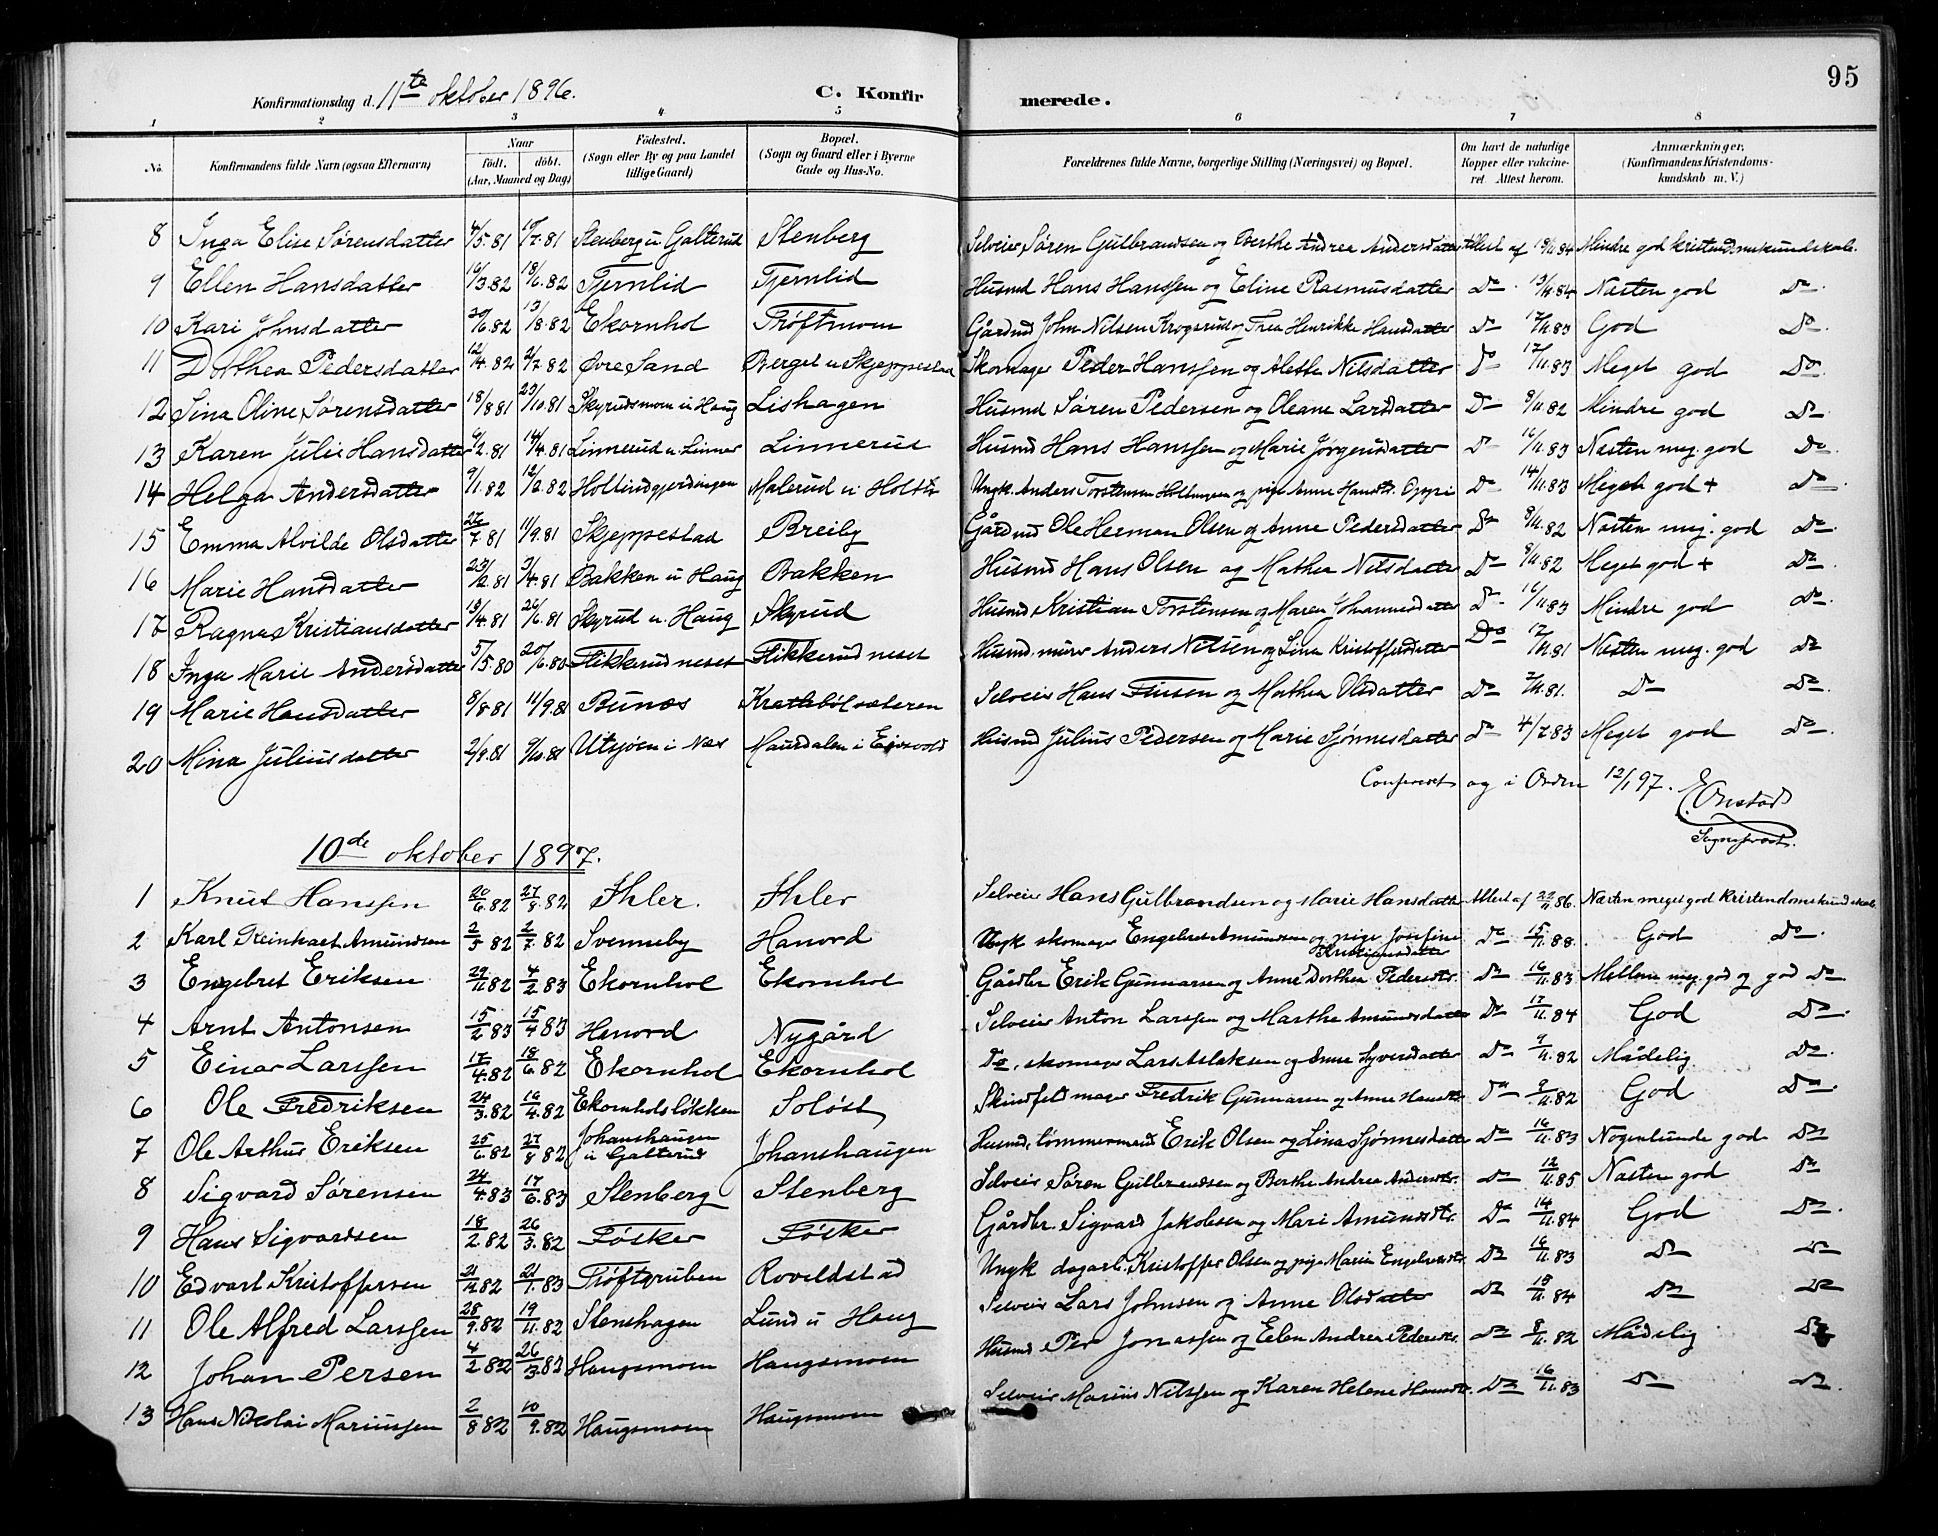 95
Konfirmationsdag d. 11te oktober 1896. C. Konfirmerede.
1 2 3 4 5 6 7 8
No. Konfirmandens fulde Navn (ogsaa Efternavn) Naar født. døbt. (Aar, Maaned og Dag) Fødested. (Sogn eller By og paa Landet tillige Gaard) Bopæl. (Sogn og Gaard eller i Byerne Gade og Hus-No. Forældrenes fulde Navne, borgerlige Stilling (Næringsvei) og Bopæl. Om havt de naturlige Kopper eller vakcineret. Attest herom. Anmærkninger. (Konfirmandens Kristendomskundskab m. V.)
8 Inga Elise Sørensdatter 4/5.81 17/7.81 Stenberg u. Galterud Stenberg Selveier Søren Gulbrandsen og Berthe Andrea Andersdatter Attest af 13/11 84 Mindre god kristendomskundskab.
9 Ellen Hansdatter 16/3.82 18/6.82 Tjernlid Tjernlid Husmd Hans Hanssen og Eline Rasmusdatter Do 13/11.84 Næsten god Do.
10 Kari Johnsdatter 20/6.82 13/8.82 Ekornhol Trøftmoen Gårdmd John Nilsen Krogerud og Thea Henrikke Hansdatter Do 17/11.83 God Do.
11 Dorthea Pedersdatter 12/4.82 2/7.82 Øvre Sand Berget u Skjeppestad Skomager Peder Hanssen og Alette Nilsdatter Do 17/11.83 Meget god Do.
12 Sina Oline Sørensdatter 18/8 81 23/10.81 Skyrudsmoen u Haug Lishagen Husmd Søren Pedersen og Oleane Larsdatter Do 8/11.82 Mindre god Do
13 Karen Julie Hansdatter 9/2.81 14/4.81 Linnerud u. Linner Linnerud Husmd Hans Hanssen og Marie Jørgensdatter Do 16/11.83 Næsten meg. god Do.
14 Helga Andersdatter 9/1.82 12/2.82 Holtindgjerdingen Malerud u Holter Ungk. Anders Torstensen og pige Anne Do 14/11.83 Meget god + Do.
15 Emma Alvilde Olsdatter 27/7 81 11/9.81 Skjeppestad Breiby Gårdmd Ole Herman Olsen og Anne Pedersdatter Do 8/11.82 Næsten meg. god Do.
16 Marie Hansdatter 23/2.81 3/4.81 Bakken u Haug Bakken Husmd Hans Olsen og Mathea Nilsdatter Do 8/11.82 Meget god + Do.
17 Ragna Kristiansdatter 13/4.81 26/6.81 Skyrud u. Haug Skyrud Husmd Kristian Torstensen og Maren Johannesdatter Do 16/11 83 Mindre god Do.
18 Inga Marie Andersdatter 5/5.80 20/6.80 Flikkerud neset Flikkerud neset Husmd, murer Anders Nilsen og Lina Kristoffersdatter Do 17/11.81 Næsten meg. god Do
19 Marie Hansdatter 8/8 81 11/9.81 Bunæs Krattebølsæteren Selveier Hans og Mathea Olsdatter Do 7/11.81. Do Do.
20 Mina Juliusdatter 2/8.81 9/10.81 Utsjøen i Næs Maurdalen i Eidsvold Husmd Julius Pedersen og Marie Sjønnesdatter Do 4/7.83 Meget god Do.
Confereret og i Orden 12/1 97. E. Onstad
Sogneprest.
10de oktober 1897.
1 Knut Hanssen 20/6.82 27/8.82 Ihler. Ihler Selveier Hans Gulbrandsen og Marie Hansdatter Attest af 22/11.86. Næsten meget god Kristendomskundskab
2 Karl Reinhart Amundsen 2/5 82 2/7 82 Svenneby Hanord Ungk skomager Engebret Amundsen og pige Josefine Kristiansdatter Do 15/11.88. God Do.
3 Engebret Eriksen 29/11.82 4/2.83 Ekornhol Ekornhol Gårdbr Erik Gunnarsen og Anne Dorthea Pedersdtr. Do 16/11.83 Mellem meg. god og god Do
4 Arnt Antonsen 15/2 83 15/4 83 Henord Nygård Selveier Anton Larssen og Marthe Amundsdatter Do 17/11.84 God Do.
5 Einar Larssen 17/4.82 18/6.82 Ekornhol Ekornhol Do, skomager Lars Aslaksen og Anne Syversdatter Do 9/11.82 Mådelig Do.
6 Ole Fredriksen 24/3.82 16/4.82 Ekornholsløkken Soløst Skindfeldmager Fredrik Gunnarsen og Anne Hansdtr. Do 9/11.82 God Do.
7 Ole Arthur Eriksen 25/6.82 27/8 82 Johanshaugen u Galterud Johanshaugen Husmd, tømmermand Erik Olsen og Lina Sjønnesdatter Do 16/11.83 Nogenlunde god Do
8 Sigvard Sørensen 24/4.83 17/6.83 Stenberg Stenberg Selveier Søren Gulbrandsen og Berthe Andrea Andersdtr. Do 12/11.85 Næsten god Do
9 Hans Sigvardsen 18/2.82 26/3.82 Føsker Føsker Gårdbr. Sigvard Jakobsen og Mari Amundsdtr. Do 14/11.84 God Do.
10 Edvart Kristoffersen 21/12.82 21/1.83 Trøftgruben Roveldstad Ungk dagarb. Kristoffer Olsen og pige Maren Engebretsdtr. Do 16/11.83 Do Do
11 Ole Alfred Larssen 28/9.82 19/11.82 Stenshagen Lund u Haug Selveier Lars Johnsen og Anne Olsdatter Do 18/11.84 Do Do
12 Johan Persen 4/2 82 26/3.82 Haugsmoen Haugsmoen Husmd Per Jonassen og Elen Andrea Pedersdtr. Do 8/11.82 Mådelig Do
13 Hans Nikolai Mariussen 2/8 82 10/9.82 Haugsmoen Haugsmoen Selveier Marius Nilssen og Karen Helene Hansdtr. Do 16/11.83 Do Do.